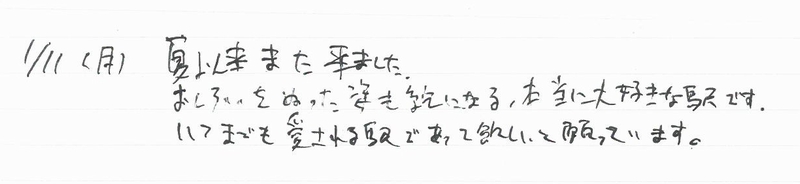 1/11(月) 夏以来また来ました。
おしろいをぬった姿も絵になる、本当に大好きな駅です。
いつまでも愛される駅であって欲しいと願っています。